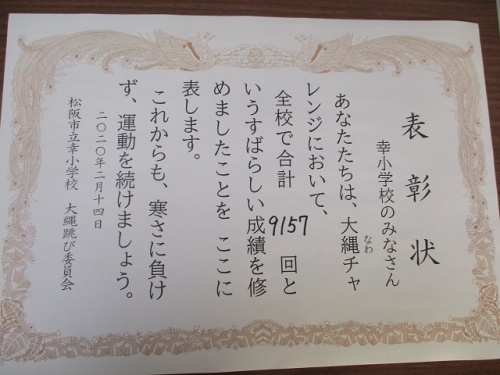 表彰状
幸小学校のみなさん
あなたたちは、大縄チャ
なわ
レンジにおいて、
全校で合計 9157 回と
いうすばらしい成績を修
めましたことを ここに
表します。
これからも、寒さに負け
ず、運動を続けましょう。
二〇二〇年二月十四日
松阪市立幸小学校 大縄跳び委員会